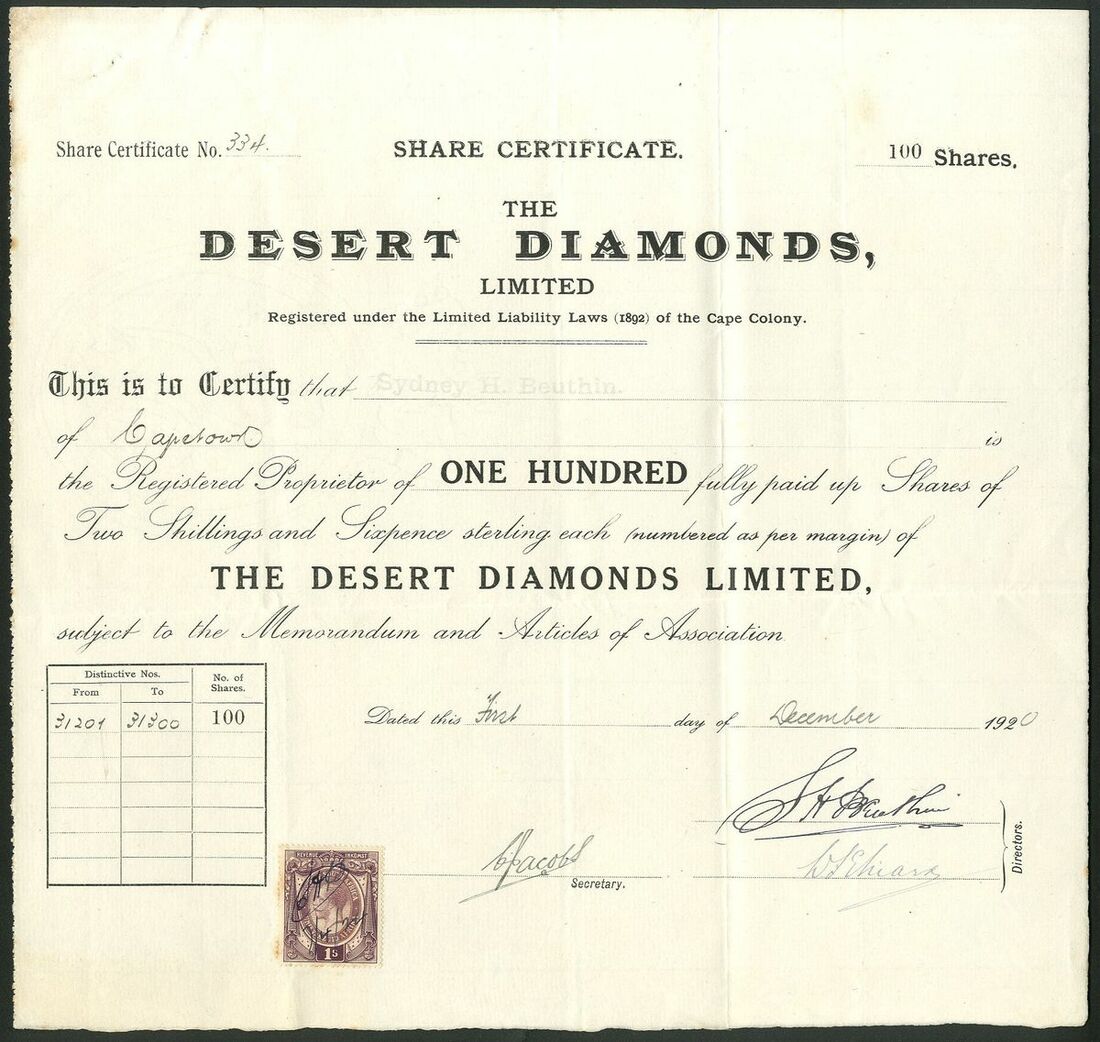 Share Certificate No. 334. SHARE CERTIFICATE. 100 Shares.
THE
DESERT DIAMONDS,
LIMITED
Registered under the Limited Liability Laws (1892) of the Cape Colony.
This is to Certify that Sydney H. Beuthin.
of Capetown is
the Registered Proprietor of ONE HUNDRED fully paid up Shares of
Two Shillings and Sixpence sterling each (numbered as per margin) of
THE DESERT DIAMONDS LIMITED,
subject to the Memorandum and Articles of Association
Distinctive Nos. No. of Shares.
From To
31201 31300 100
Dated this First day of December 1920
S H Beuthin
Directors.
Jacobs
Secretary.
REVENUE INKOMST
1s